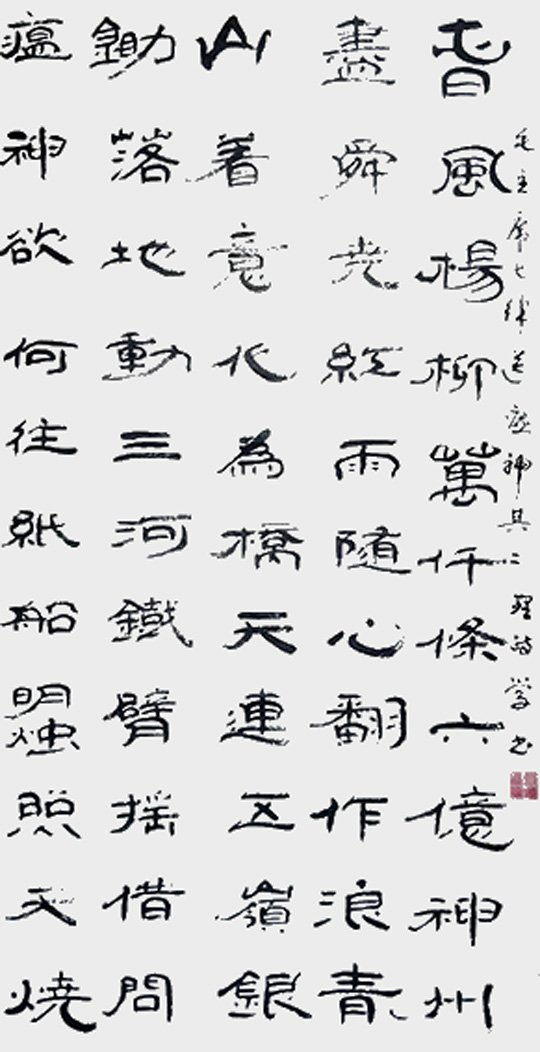 毛主席七律送瘟神其二書
春風楊柳萬仟條六億神州
盡舜堯紅雨隨心翻作浪青
山着意化為橋天連五嶺銀
鋤落地動三河鐵臂搖借問
瘟神欲何往紙船明烛照天燒